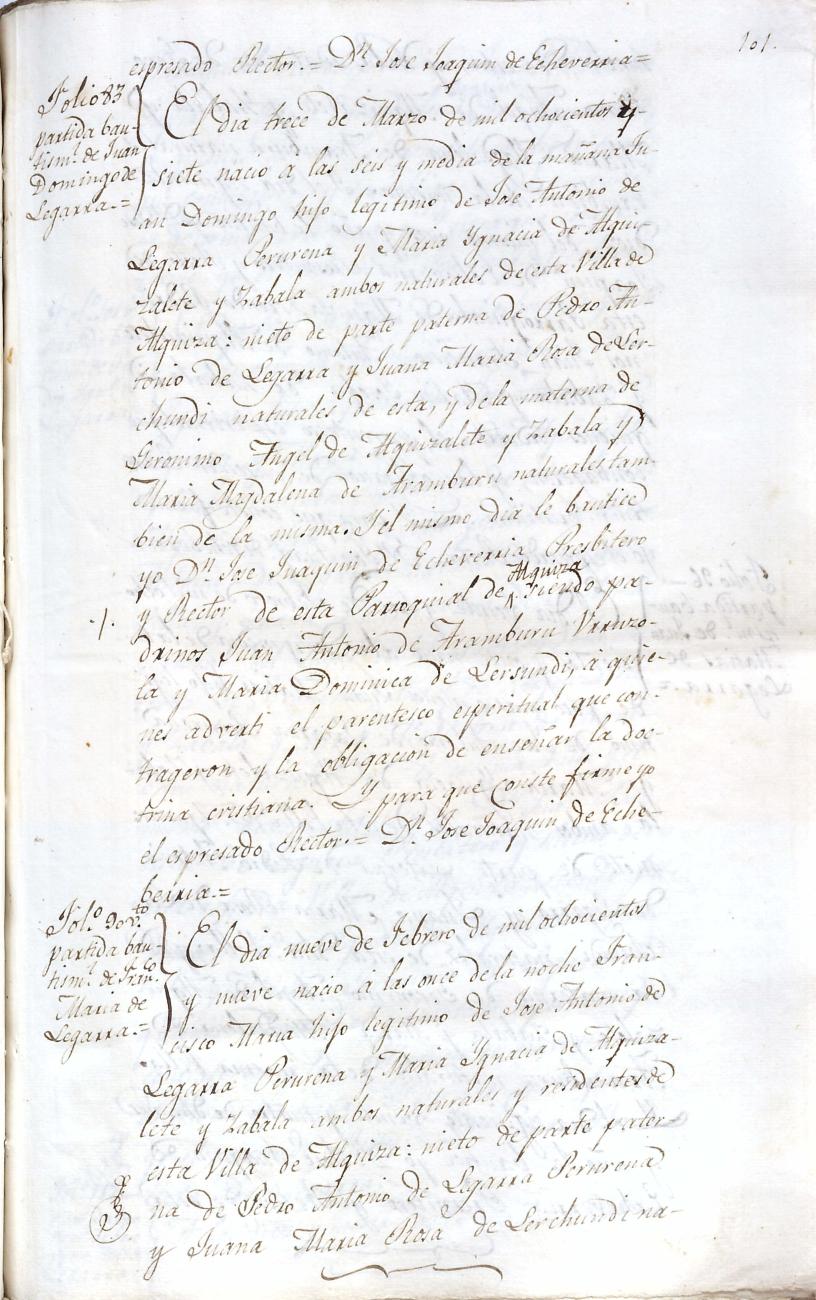 101.
espresado Rector.= Dn. Jose Joaquin de Echeverria=
Folio 83
partida bau-
tisml. de Juan
Domingo de
Legarra.=
El dia trece de Marzo de mil ochocientos y
siete nacio á las seis y media de la mañana Ju-
an Domingo hijo legitimo de Jose Antonio de
Legarra Perurena y Maria Ygnacia de Alqui-
zalete y Zabala ambos naturales de esta Villa de
Alquiza: nieto de parte paterna de Pedro An-
tonio de Legarra y Juana Maria Rosa de Ler-
chundi naturales de esta, y de la materna de
Geronimo Angel de Alquizalete y Zabala y
Maria Magdalena de Aramburu naturales tam-
bien de la misma. Y el mismo dia le bauticé
yo Dn. Jose Juaquin de Echeverria Presbitero
y Rector de esta Parroquial de Alquiza siendo pa-
drinos Juan Antonio de Aramburu Urruzo-
la y Maria Dominica de Lersundi, á quie-
nes adverti el parentesco espiritual que con-
trageron y la obligacion de enseñar la doc-
trina cristiana. Y para que Conste firme yo
el espresado Rector.= Dn. Jose Joaquin de Eche-
berria.=
Folo. 90 vto.
partida bau-
tisml. de Franco.
Maria de
Legarra.=
El dia nueve de Febrero de mil ochocientos
y nueve nacio á las once de la noche Fran-
cisco Maria hijo legitimo de Jose Antonio de
Legarra Perurena y Maria Ygnacia de Alquiza-
lete y Zabala ambos naturales y residentes de
esta Villa de Alquiza: nieto de parte pater-
na de Pedro Antonio de Legarra Perurena
y Juana Maria Rosa de Lerchundi na-